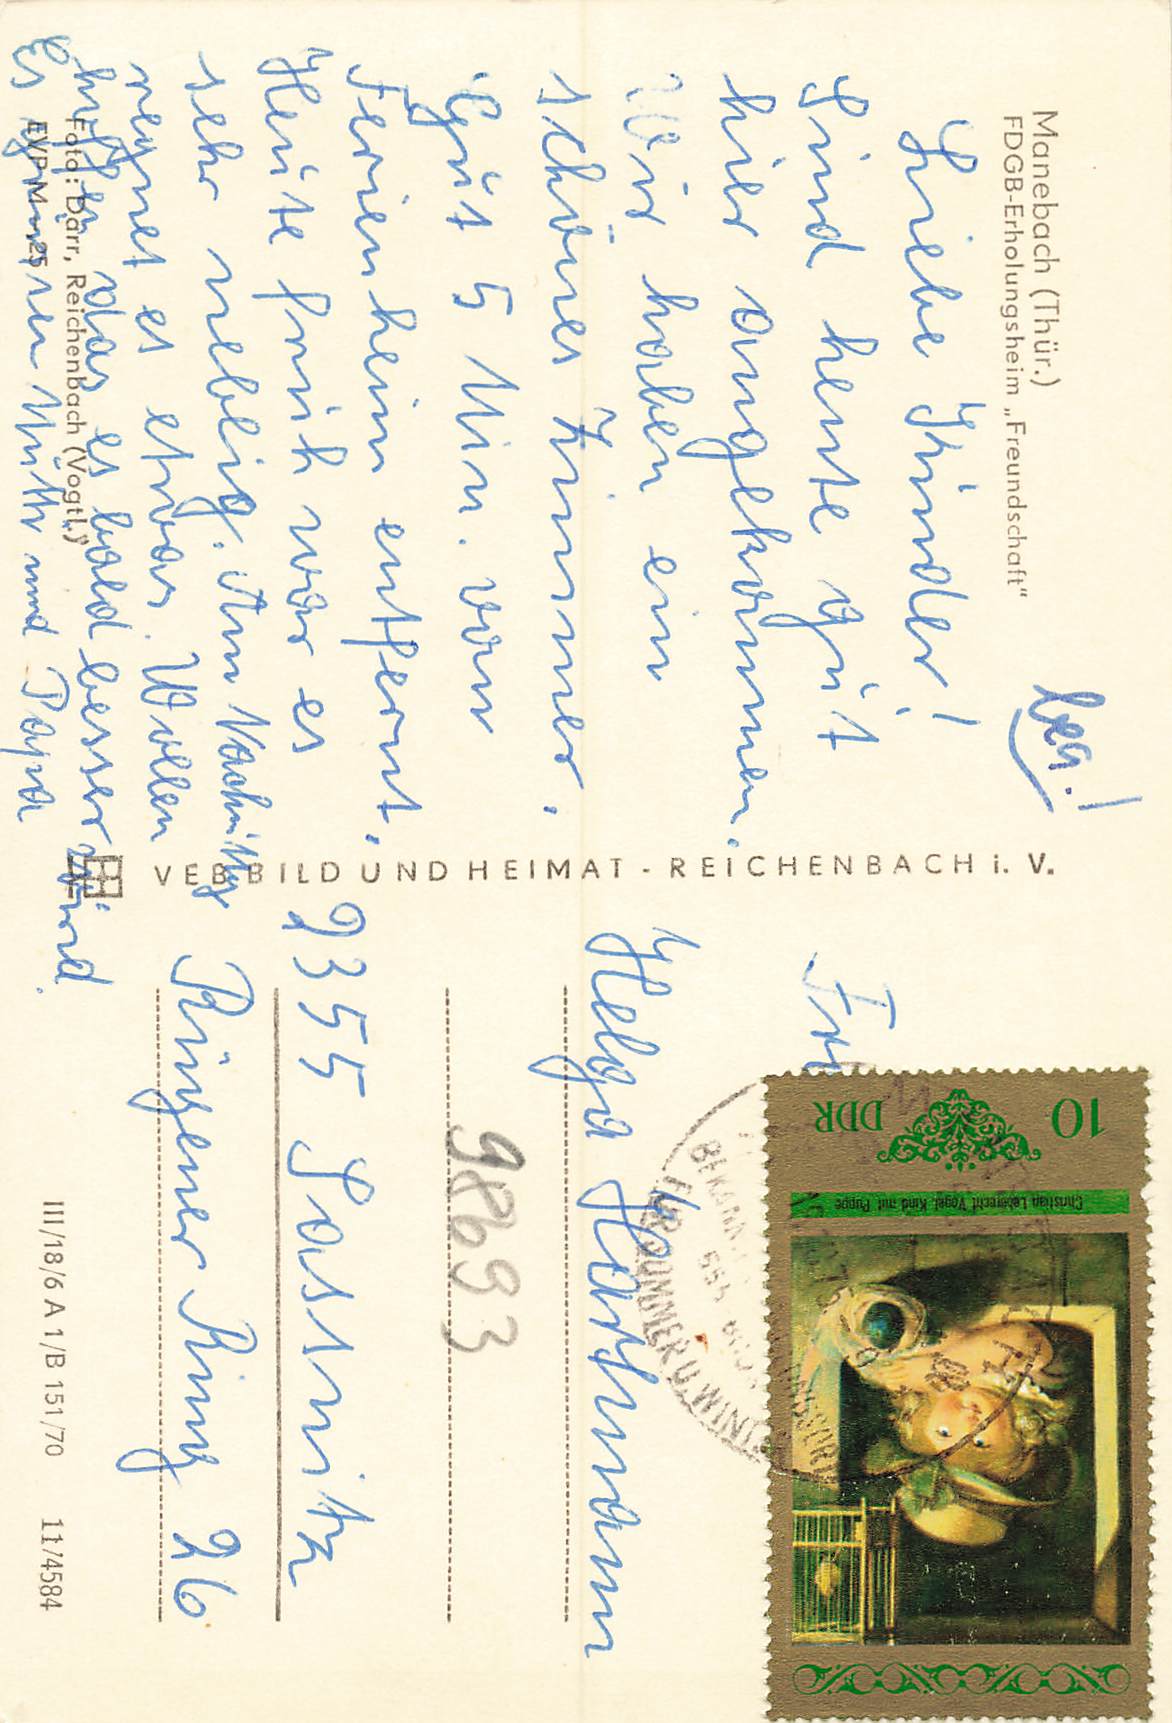 Manebach (Thür.)
FDGB-Erholungsheim „Freundschaft"
bea.!
Liebe Kinder!
Sind heute gut
hier angekommen.
Wir haben ein
schönes Zimmer.
Gut 5 Min. vom
Ferienheim entfernt.
Heute früh war es
sehr neblig. Am Nachmittag
regnet es etwas. Wollen
hoffen das es bald besser wird.
Es grüssen Mutti und Papa
Foto: Darr, Reichenbach (Vogtl.)
EVP M -,25
VEB BILD UND HEIMAT - REICHENBACH i. V.
Helga Hartmann
98693
2355 Sassnitz
Rügener Ring 26
III/18/6 A 1/B 151/70 11/4584
10 DDR
Christian Leberecht Vogel, Kind mit Puppe
SOMMER U. WINT